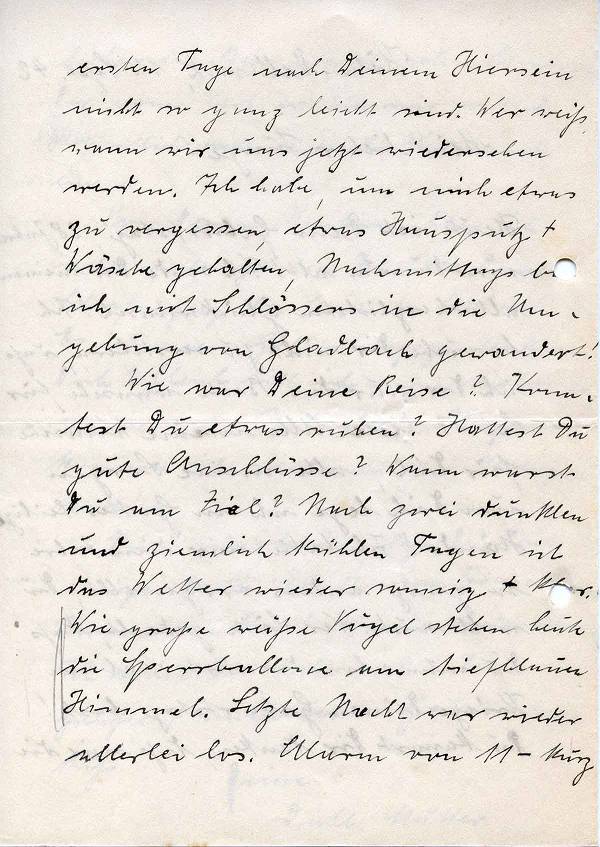 ersten Tage nach Deinem Hiersein
nicht so ganz leicht sind. Wer weiß,
wann wir uns jetzt wiedersehen
werden. Ich habe, um mich etwas
zu vergessen, etwas Hausputz +
Wäsche gehalten, Nachmittags
ich mit Schlössers in die Um-
gebung von Gladbach gewandert!
Wie war Deine Reise? Konn-
test Du etwas ruhen? Hattest Du
gute Anschlüsse? Wann warst
Du am Ziel? Nach zwei dunklen
und ziemlich kühlen Tagen ist
das Wetter wieder sonnig +
Wie große weiße Vögel stehen heute
die Sperrballone am tiefblauen
Himmel. Letzte Nacht war wieder
allerlei los. Alarm von 11 - kurz